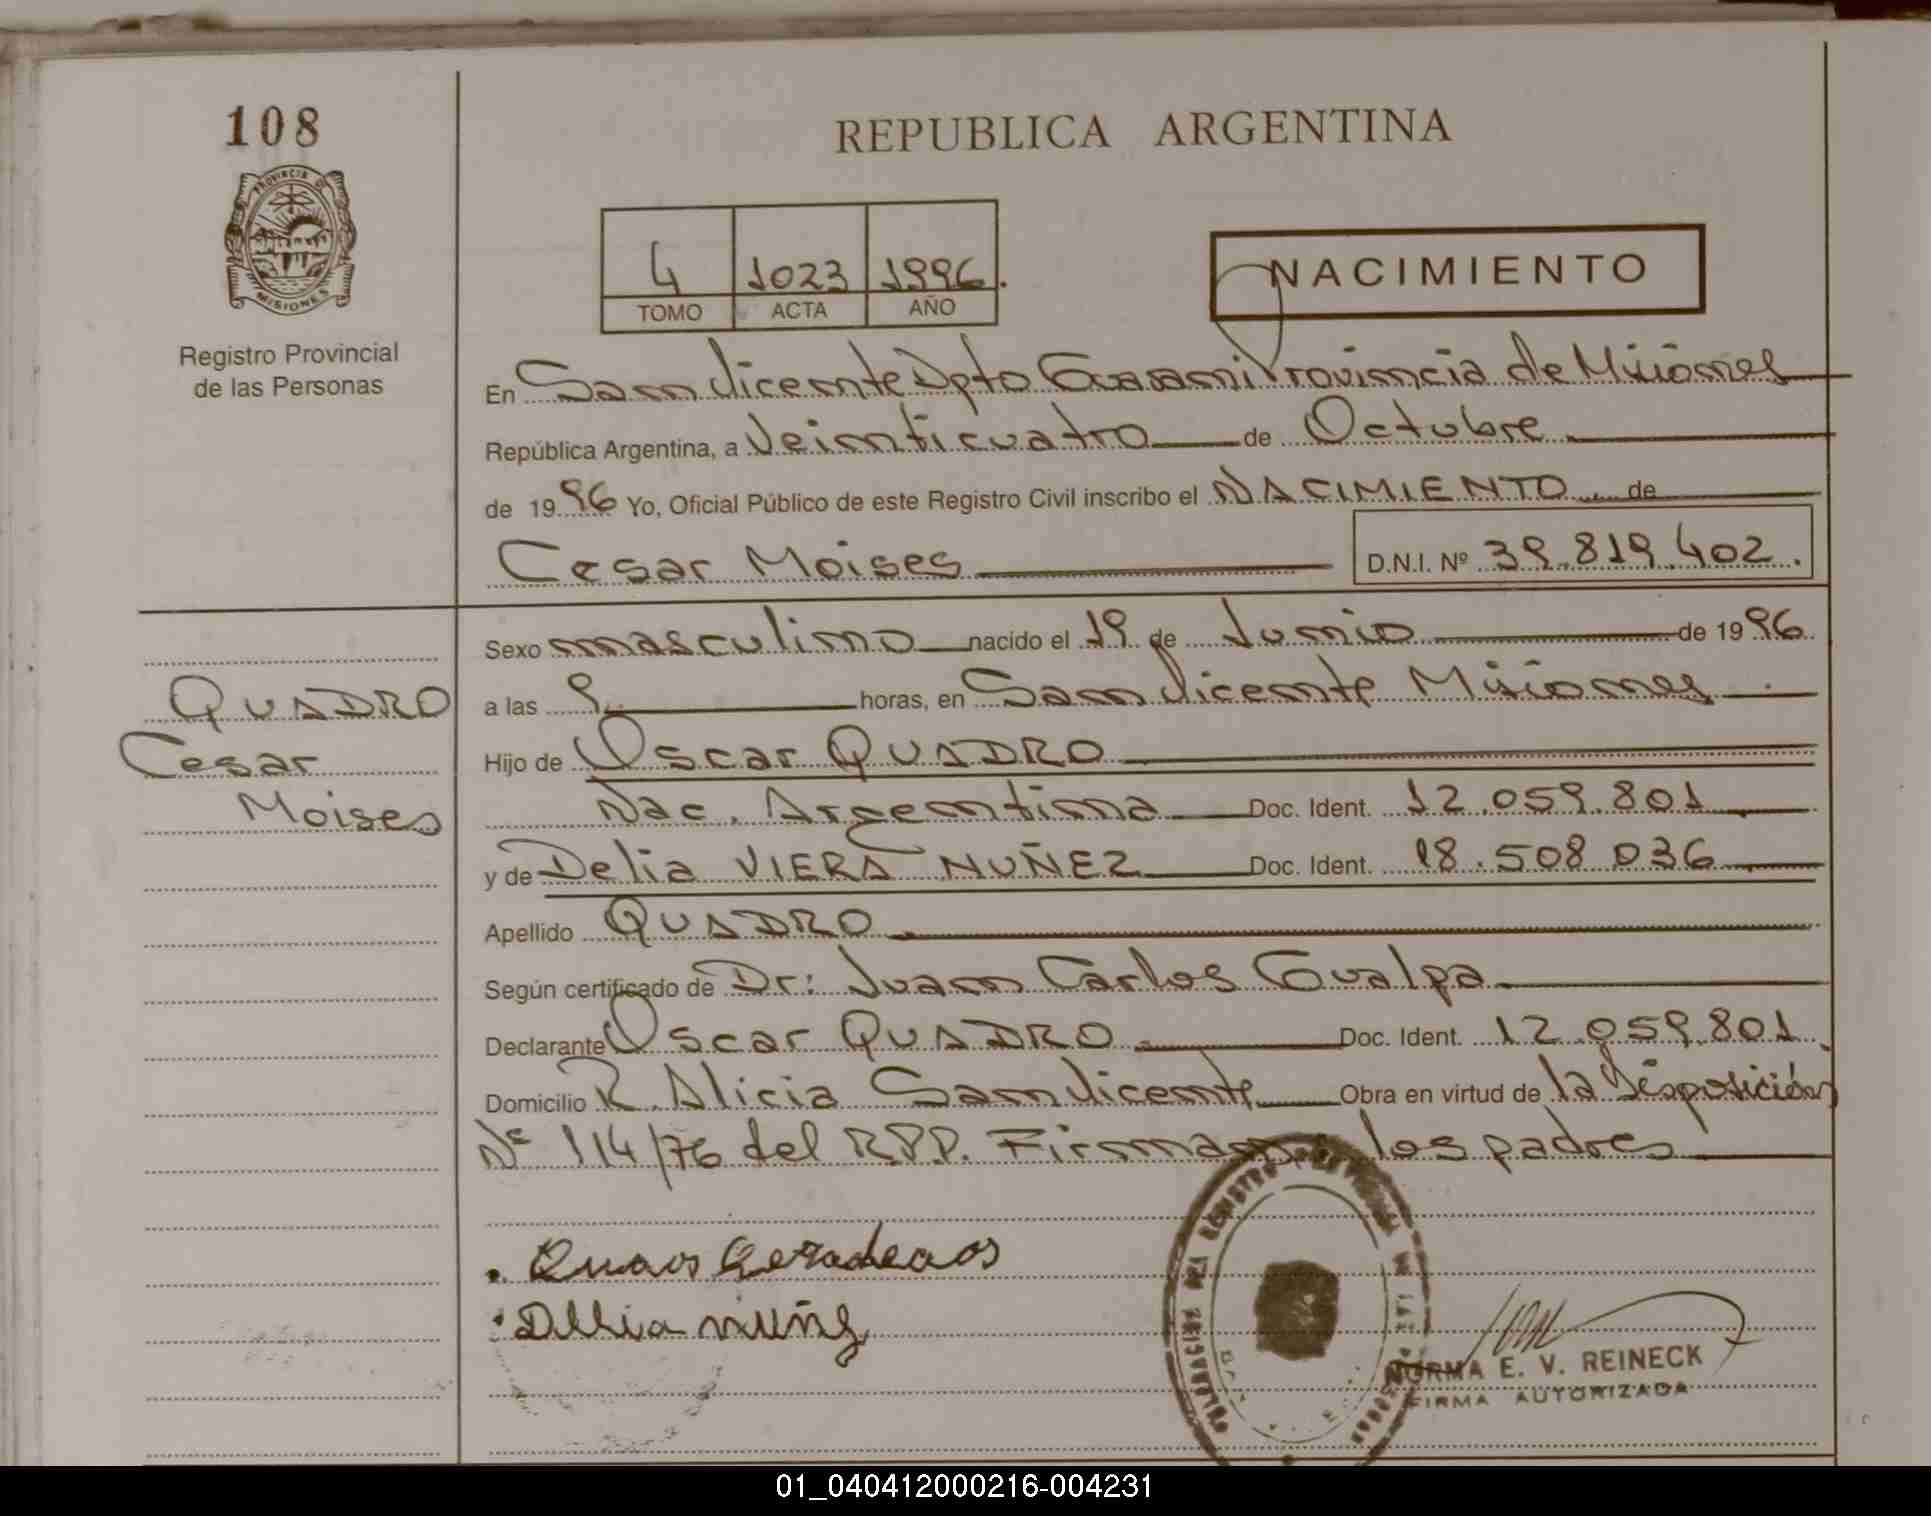 108
REPUBLICA ARGENTINA
PROVINCIA DE
MISIONES
Registro Provincial
de las Personas
4 1023 1996.
TOMO ACTA AÑO
NACIMIENTO
En San Vicente Dpto Guarani Provincia de Misiones
República Argentina, a Veinticuatro de Octubre
de 1996 Yo, Oficial Público de este Registro Civil inscribo el NACIMIENTO de
Cesar Moises D.N.I. Nº 39.819.402.
Sexo masculino nacido el 19 de Junio de 1996
QUADRO
Cesar
Moises
a las 9 horas, en San Vicente Misiones
Hijo de Oscar QUADRO
Nac. Argentina Doc. Ident. 12.059.801
y de Delia VIERA NUÑEZ Doc. Ident. 18.508.036
Apellido QUADRO
Según certificado de Dr: Juan Carlos Gualpa
Declarante Oscar QUADRO Doc. Ident. 12.059.801
Domicilio R. Alicia San Vicente Obra en virtud de la Disposición
Nº 114/76 del R.P.P. Firman los padres
NORMA E. V. REINECK
FIRMA AUTORIZADA
01_040412000216-004231